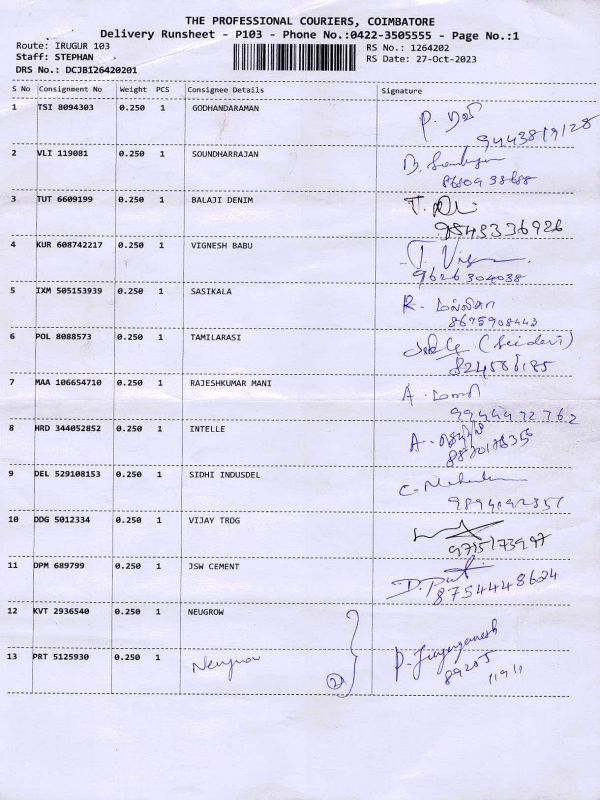 THE PROFESSIONAL COURIERS, COIMBATORE
Delivery Runsheet - P103 - Phone No.:0422-3505555 - Page No.:1
Route: IRUGUR 103 RS No.: 1264202
Staff: STEPHAN RS Date: 27-Oct-2023
DRS No.: DCJB126420201
S No Consignment No Weight PCS Consignee Details Signature
1 TSI 8094303 0.250 1 GODHANDARAMAN P.
2 VLI 119081 0.250 1 SOUNDHARRAJAN B.
3 TUT 6609199 0.250 1 BALAJI DENIM T.
9543336926
4 KUR 608742217 0.250 1 VIGNESH BABU T.
9626304038
5 IXM 505153939 0.250 1 SASIKALA R.
8675908443
6 POL 8088573 0.250 1 TAMILARASI
7 MAA 106654710 0.250 1 RAJESHKUMAR MANI A.
9944972762
8 HRD 344052852 0.250 1 INTELLE A.
9 DEL 529108153 0.250 1 SIDHI INDUSDEL C.
10 DDG 5012334 0.250 1 VIJAY TRDG
11 DPM 689799 0.250 1 JSW CEMENT D.
8754448624
12 KVT 2936540 0.250 1 NEUGROW
13 PRT 5125930 0.250 1 Neugrow P.
89205